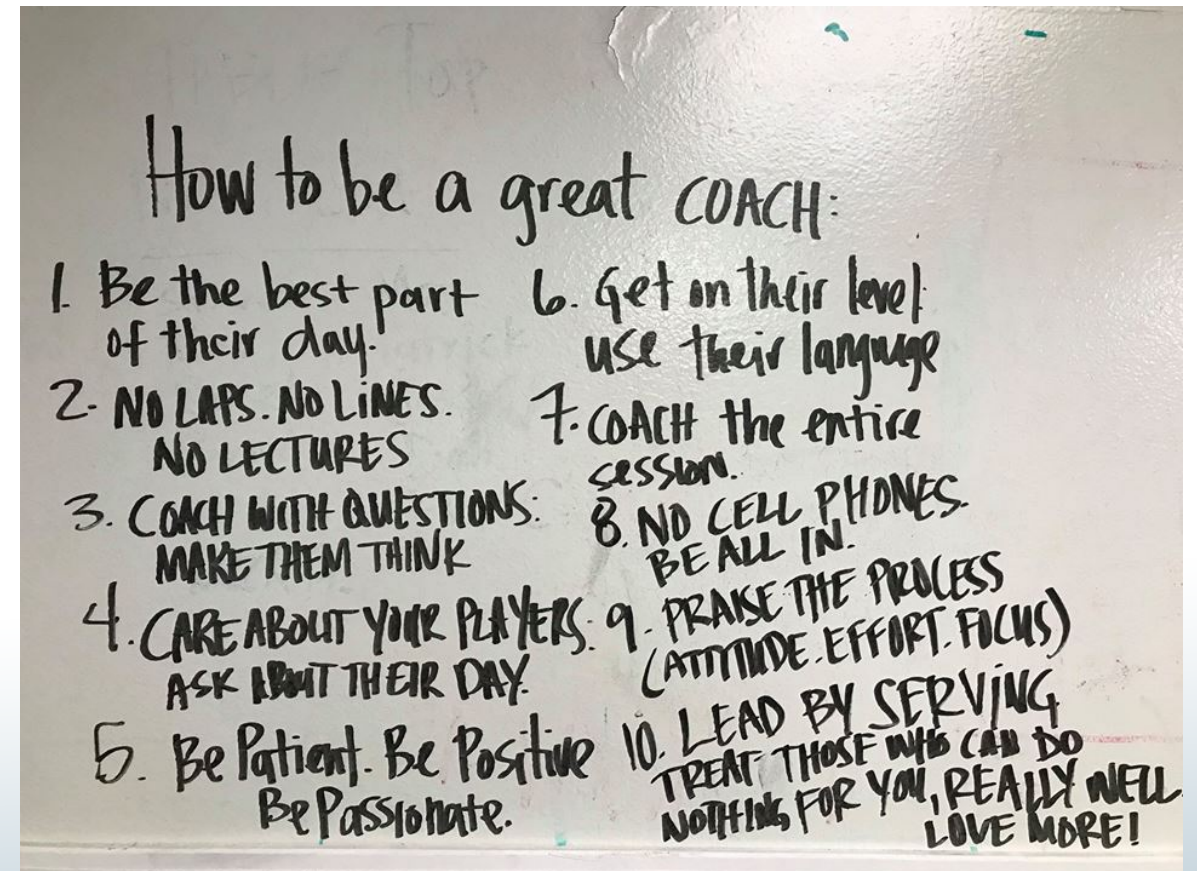 How to be a great COACH:
1. Be the best part
of their day.
2. NO LAPS. NO LINES.
NO LECTURES
3. COACH WITH QUESTIONS.
MAKE THEM THINK
4. CARE ABOUT YOUR PLAYERS.
ASK ABOUT THEIR DAY.
5. Be Patient. Be Positive
Be Passionate.
6. Get on their level.
use their language
7. COACH the entire
session.
8. NO CELL PHONES.
BE ALL IN.
9. PRAISE THE PROCESS
(ATTITUDE. EFFORT. FOCUS)
10. LEAD BY SERVING
TREAT THOSE WHO CAN DO
NOTHING FOR YOU, REALLY WELL.
LOVE MORE!